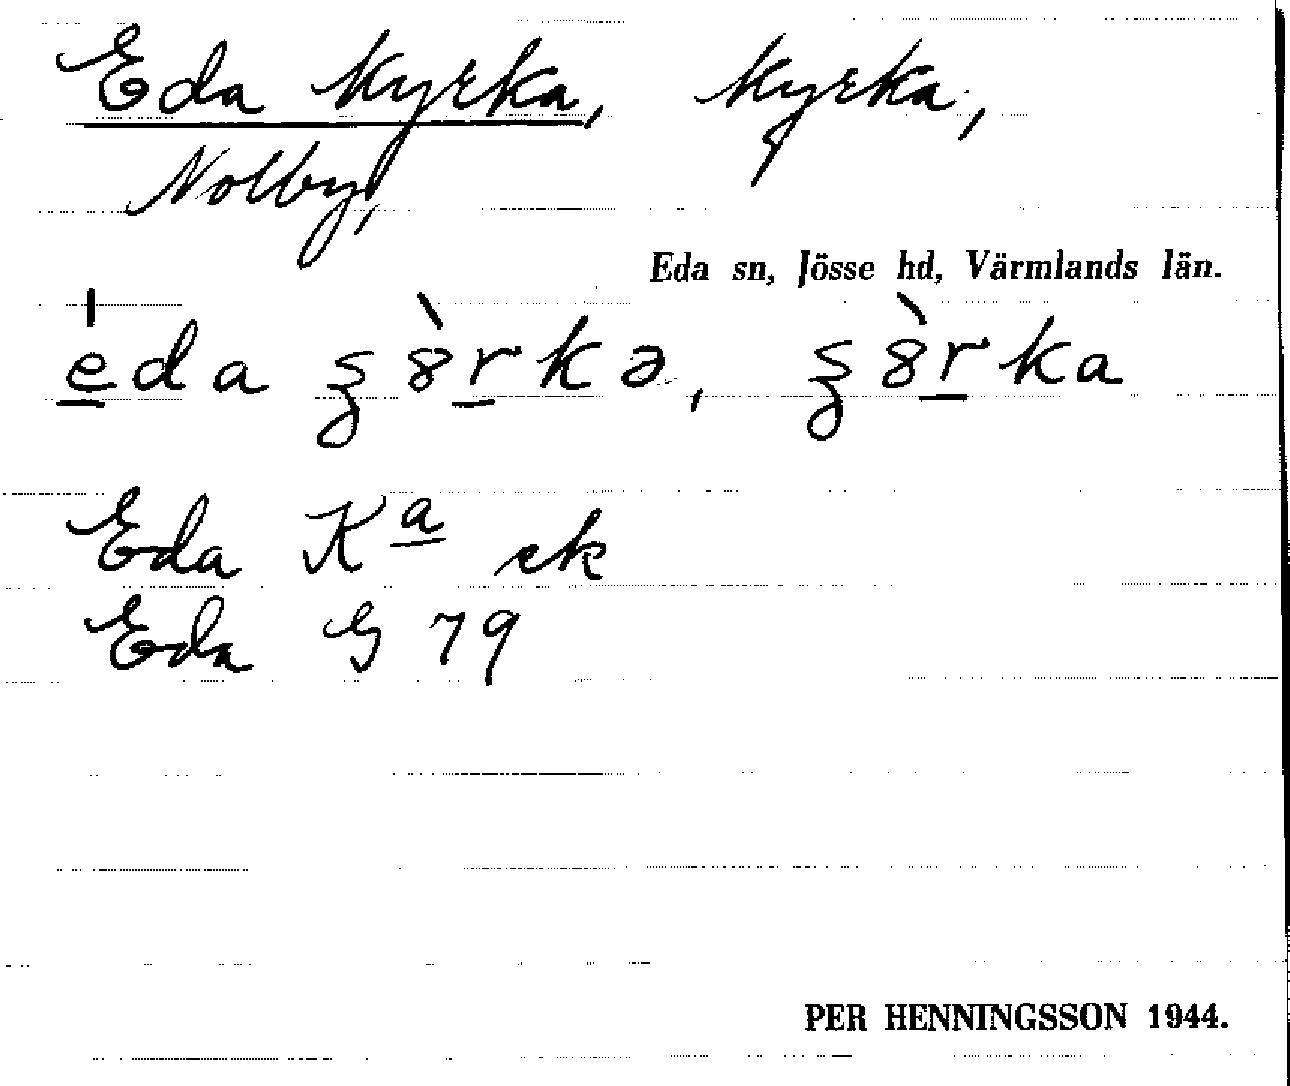 Eda kyrka, kyrka,
Nolby,
Eda sn, Jösse hd, Värmlands län.
èda ʂ8̀rkə, ʂ8̀rka
Eda Kª ek
Eda G 79
PER HENNINGSSON 1944.